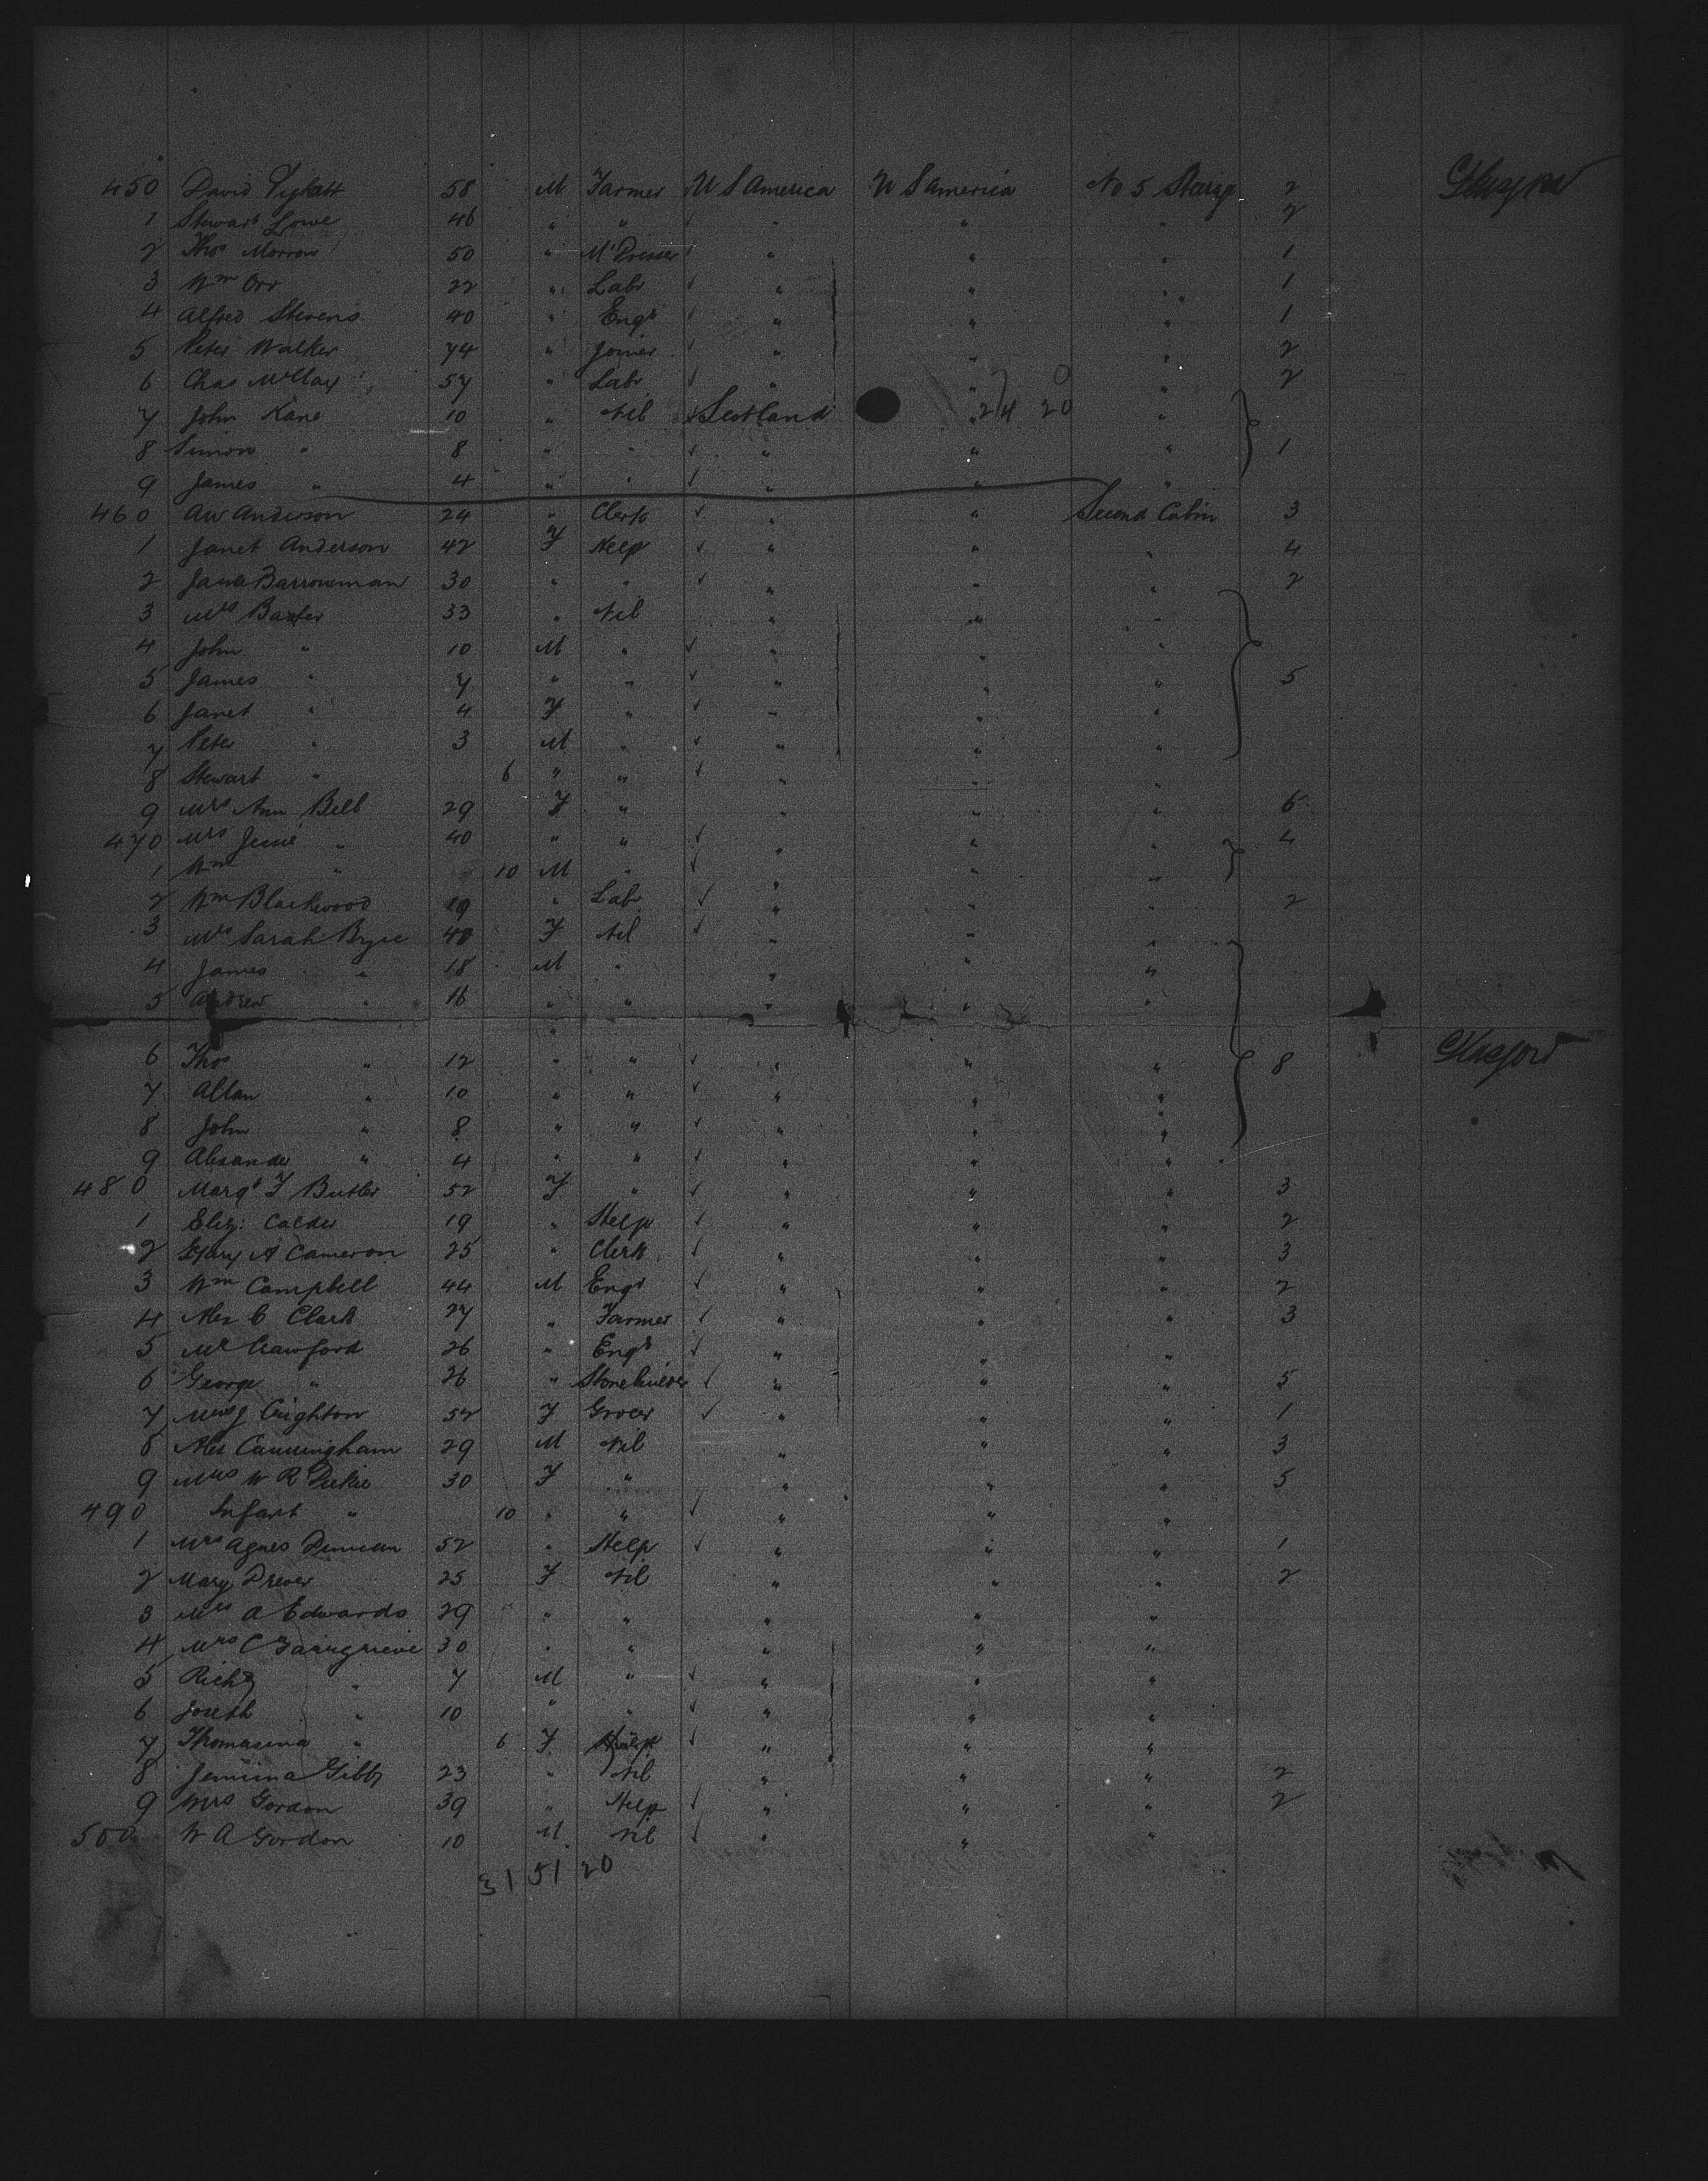 450 David 58 M Farmer U S America U S America No 5 Steerage 2 Glasgow
1 Stewart Lowe 46 " " " " " 2
2 Thos Morrow 50 " " " " 1
3 Wm Orr 22 " Labr " " " 1
4 Alfred Stevens 40 " Engr " " " 1
5 Peter Walker 74 " Joiner " " " 2
6 Chas 57 " Labr " " " 2
7 John Kane 10 " Nil Scotland " 2/4 20 "
8 Simon " 8 " " " " " 1
9 James " 4 " " " " "
460 Aw Anderson 24 " Clerk " " Second Cabin 3
1 Janet Anderson 42 F Help " " " 4
2 Jane Barrowman 30 " " " " " 2
3 Mrs Baxter 33 " Nil " " "
4 John " 10 M " " " "
5 James " 7 " " " " " 5
6 Janet " 4 F " " " "
7 Peter " 3 M " " " "
8 Stewart " 6 " " " " "
9 Mrs Ann Bell 29 F " " " " 6
470 Mrs Jessie " 40 " " " " " 4
1 Wm " 10 M " " " "
2 Wm Blackwood 19 " Labr " " " 2
3 Mrs Sarah 48 F Nil " " "
4 James " 18 M " " " "
5 Andrew " 16 " " " " "
6 Thos " 12 " " " " " 8 Glasgow
7 Allan " 10 " " " " "
8 John " 8 " " " " "
9 Alexander " 4 " " " " "
480 Margt F Butler 52 F " " " " 3
1 Eliz: Calder 19 " Help " " " 2
2 Mary A Cameron 25 " Clerk " " " 3
3 Wm Campbell 44 M Engr " " " 2
4 Alex C Clark 27 " Farmer " " " 3
5 Crawford 26 " Engr " " "
6 George " 26 " " " " 5
7 Crighton 52 F Grocer " " " 1
8 Alex Cunningham 29 M Nil " " " 3
9 Mrs W R Dickie 30 F " " " " 5
490 Infant " 10 " " " " "
1 Mrs Agnes Duncan 52 " Help " " " 1
2 Mary Drever 25 F Nil " " " 2
3 Mrs A Edwards 29 " " " " "
4 Mrs C Fairgrieve 30 " " " " "
5 " 7 M " " " "
6 Joseph " 10 " " " " "
7 Thomasina " 6 F " " "
8 Jemima Gibb 23 " Nil " " " 2
9 Mrs Gordon 39 " Help " " " 2
500 W A Gordon 10 M Nil " " "
31 51 20